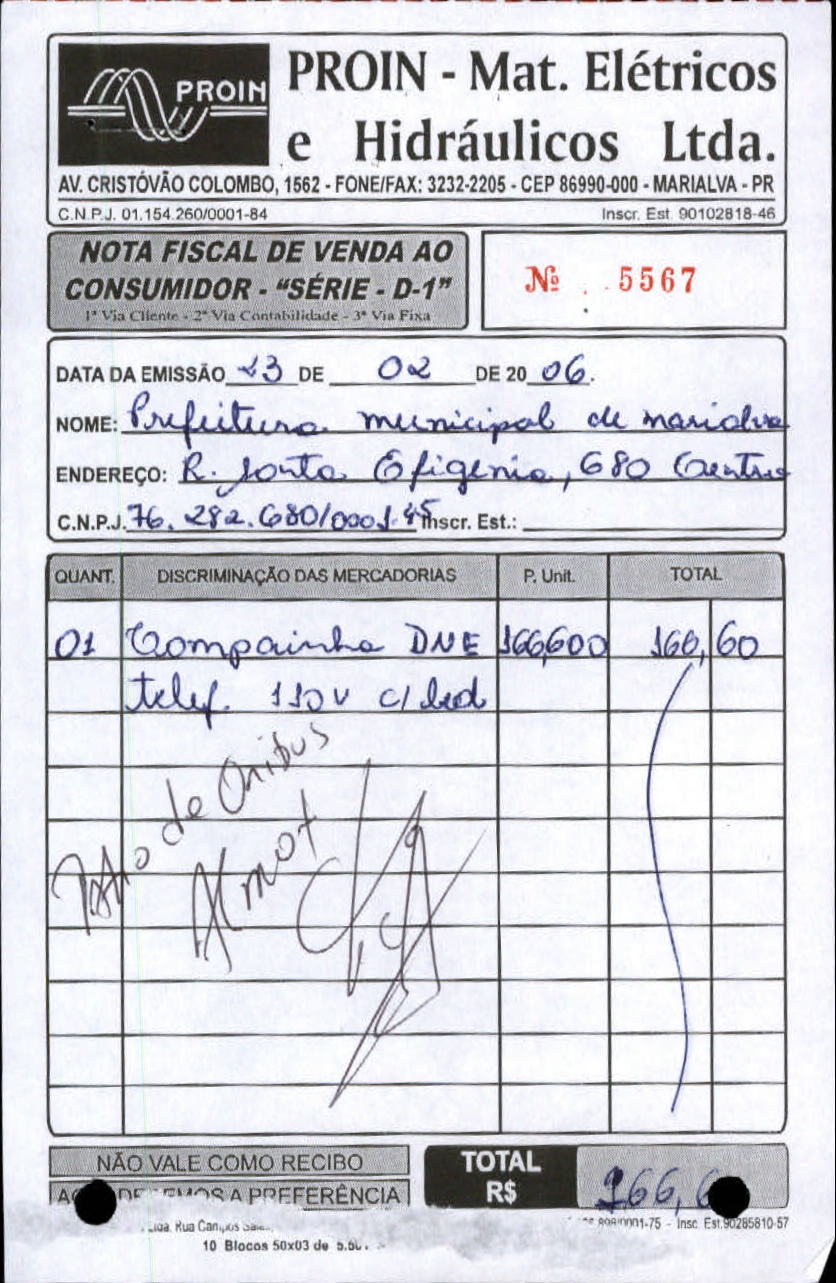 PROIN
PROIN - Mat. Elétricos
e Hidráulicos Ltda.
AV. CRISTÓVÃO COLOMBO, 1562 - FONE/FAX: 3232-2205 - CEP 86990-000 - MARIALVA - PR
C.N.P.J. 01.154.260/0001-84 Inscr. Est. 90102818-46
NOTA FISCAL DE VENDA AO
CONSUMIDOR - "SÉRIE - D-1"
1ª Via Cliente - 2ª Via Contabilidade - 3ª Via Fixa
Nº 5567
DATA DA EMISSÃO 23 DE 02 DE 20 06.
NOME: Prefeitura municipal de marialva
ENDEREÇO: R. Santa Efigenia, 680 Centro
C.N.P.J. 76.282.680/0001-45 Inscr. Est.:
QUANT. DISCRIMINAÇÃO DAS MERCADORIAS P. Unit. TOTAL
01 Compainha DNE 166,600 166,60
telef. 110V c/ led
de Onibus
Almox
NÃO VALE COMO RECIBO
A PREFERÊNCIA
TOTAL
R$
166,
Rua Campos
-75 - Insc. Est.90285810-57
10 Blocos 50x03 de